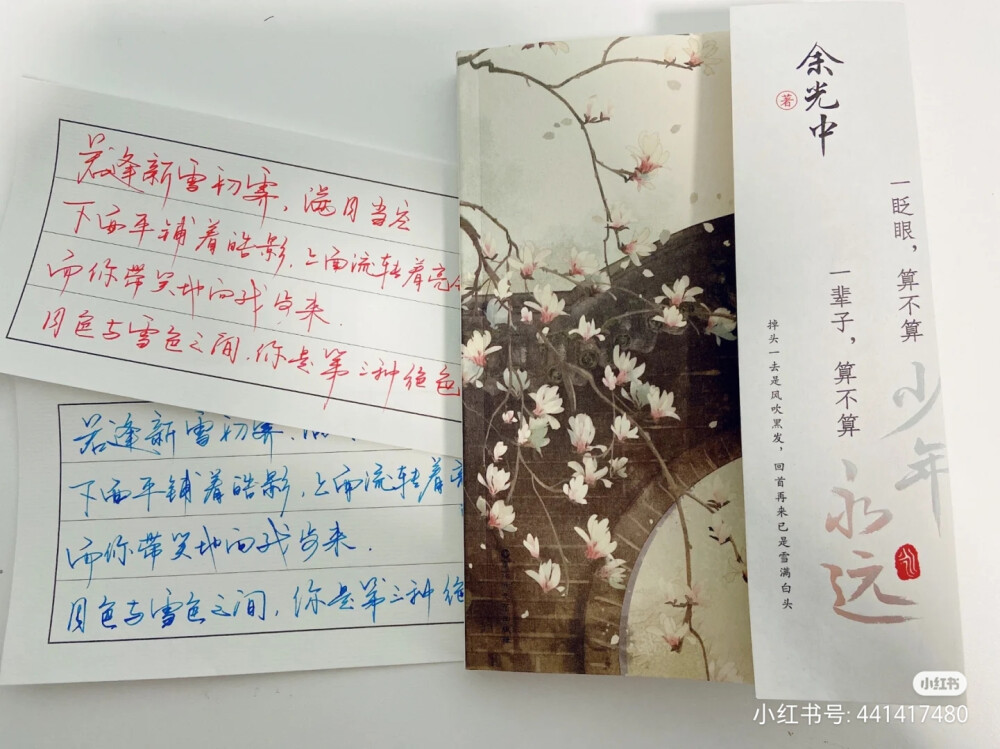 若逢新雪初霁，满月当空
下面平铺着皓影，上面流转着亮
而你带笑地向我步来
月色与雪色之间，你是第三种绝色
若逢新雪初霁
下面平铺着皓影，上面流转着
而你带笑地向我步来.
月色与雪色之间，你是第三种绝
余光中
著
一眨眼，算不算
少年
一辈子，算不算
永远
掉头一去是风吹黑发，回首再来已是雪满白头
小红书
小红书号: 441417480